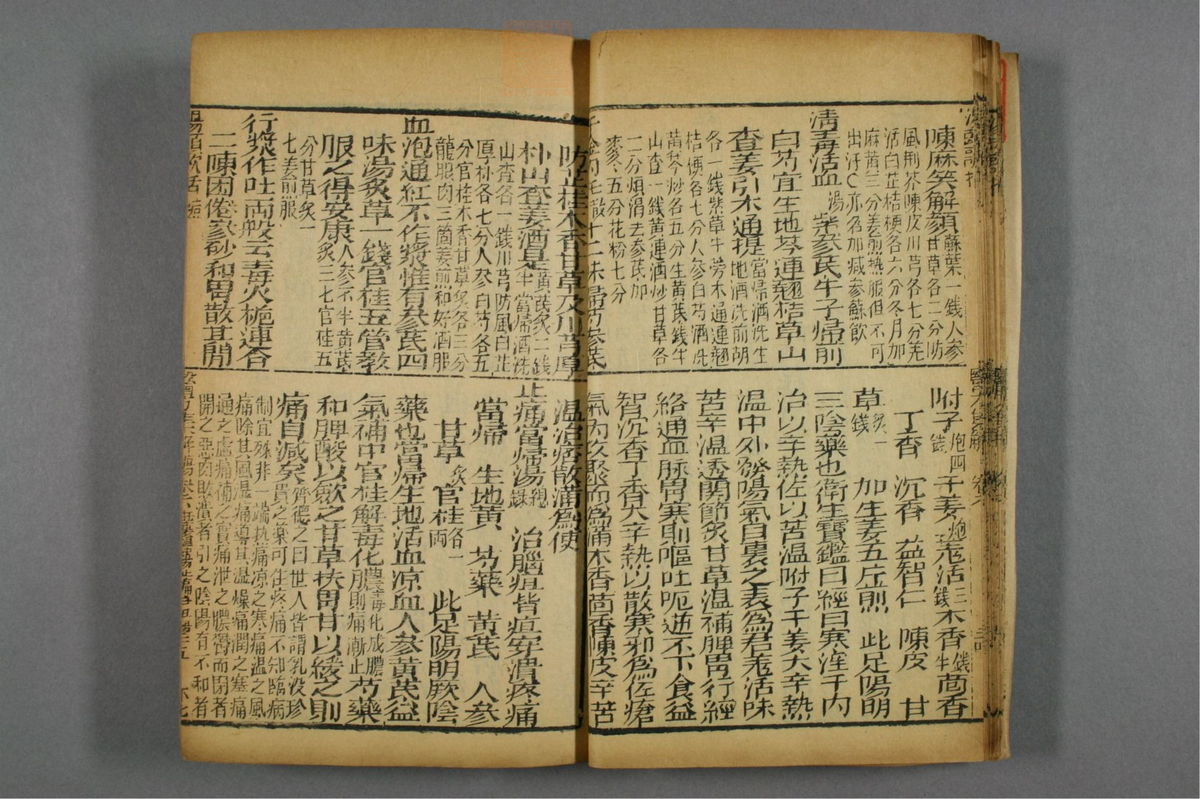 陳麻笑解顏 蘇葉一錢人參
甘草各二分防
風荆芥陳皮川芎各七分羗
活白芷桔梗各六分冬月加
麻黃三分姜煎熱服但不可
出汗〇亦名加減參蘇飲
清毒活血湯 柴參芪牛子歸前
白芍宜生地芩連翹桔草山
查姜引木通提 當歸酒洗生
地酒洗前胡
各一錢紫草牛蒡木通連翹
桔梗各七分人參白芍酒洗
黃芩炒各五分生黃芪錢半
山查一錢黃連酒炒甘草各
二分煩渴去參芪加
麥冬五分花粉七分
千金内托散十二味歸芍參芪
附子 炮四錢 干姜 炮 羌活 三錢 木香 錢半 茴香
丁香 沉香 益智仁 陳皮 甘
草 炙一錢 加生姜五片煎 此足陽明
三陰藥也衛生寶鑑曰經曰寒淫于内
治以辛熱佐以苦溫附子干姜大辛熱
溫中外發陽氣自裏之表爲君羌活味
苦辛溫透關節炙甘草溫補脾胃行經
絡通血脉胃寒則嘔吐呃逆不下食益
智沉香丁香大辛熱以散寒邪爲佐瘡
氣内攻聚而爲滿木香茴香陳皮辛苦
防芷桂木香甘草及川芎厚
朴山查姜酒是 黃芪炙二錢
半當歸酒洗
山查各一錢川芎防風白芷
厚朴各七分人參白芍各五
分官桂木香甘草炙各三分
龍眼肉三箇姜煎和好酒服
血泡通紅不作漿惟有參芪四
味湯炙草一錢官桂五管教
服之得安康 人參不半黃芪
炙三七官桂五
分甘草炙一
七姜煎服
行漿作吐兩般云毒火梔連香
二陳困倦參砂和胃散甚開
溫治痞散滿爲使
止痛當歸湯 治腦疽背疽穿潰疼痛
當歸 生地黃 芍藥 黃芪 人參
甘草 炙 官桂 各一兩 此足陽明厥陰
藥也當歸生地活血凉血人參黃芪益
氣補中官桂解毒化膿 毒化成膿則痛漸止 芍藥
和脾酸以斂之甘草扶胃甘以緩之則
痛自減矣 齊德之曰世人皆謂乳没珍
貴之藥可住疼痛不知臨病
制宜殊非一端熱痛凉之寒痛溫之風
痛除其風濕痛導其濕燥痛潤之塞痛
通之虛痛補之實痛泄之膿鬱而閉者
開之惡肉敗潰者引之陰陽有不和者